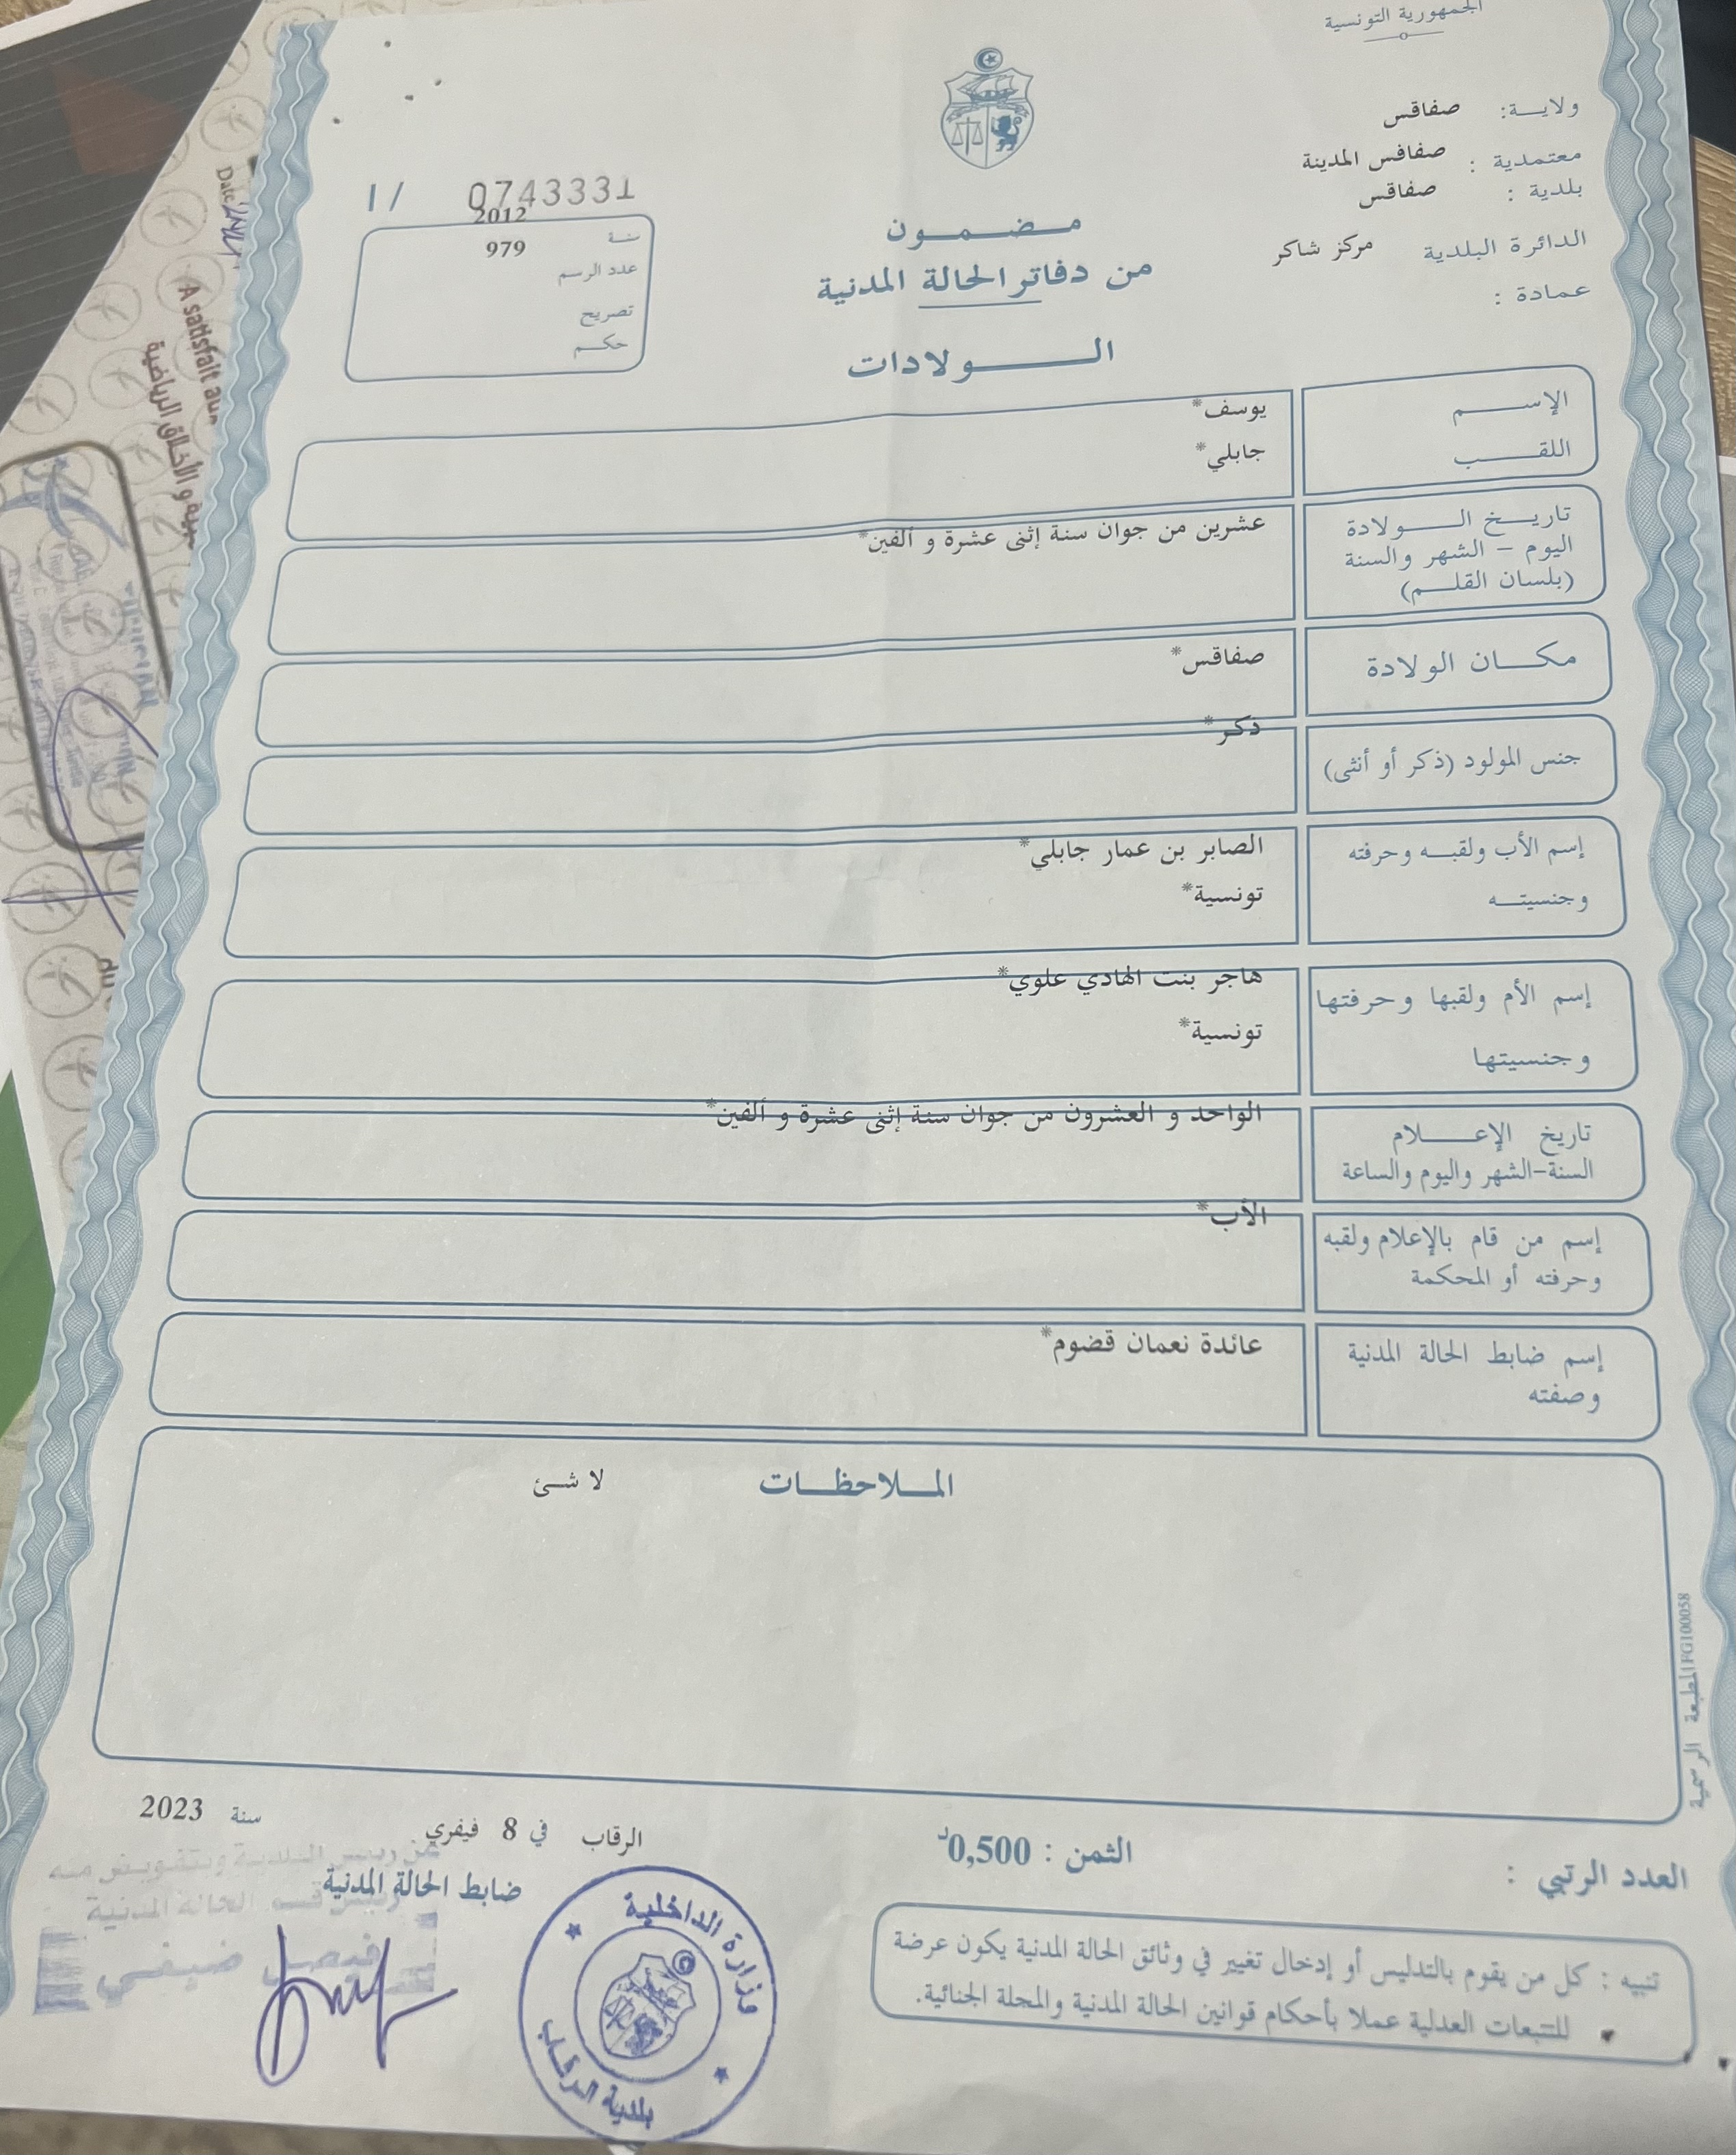 الجمهورية التونسية
ولايـــة: صفاقس
معتمدية : صفاقس المدينة
بلدية : صفاقس
الدائرة البلدية مركز شاكر
عمادة :
I / 0743331
2012
سنة
979
عدد الرسم
تصريح
حكم
مضمون
من دفاتر الحالة المدنية
الولادات
الإسم
يوسف*
اللقب
جابلي*
تاريخ الولادة
اليوم - الشهر والسنة
(بلسان القلم)
عشرين من جوان سنة إثنى عشرة و ألفين*
مكان الولادة
صفاقس*
جنس المولود (ذكر أو أنثى)
ذكر*
إسم الأب ولقبه وحرفته
وجنسيته
الصابر بن عمار جابلي*
تونسية*
إسم الأم ولقبها وحرفتها
وجنسيتها
هاجر بنت الهادي علوي*
تونسية*
تاريخ الإعلام
السنة-الشهر واليوم والساعة
الواحد و العشرون من جوان سنة إثنى عشرة و ألفين*
إسم من قام بالإعلام ولقبه
وحرفته أو المحكمة
الأب*
إسم ضابط الحالة المدنية
وصفته
عائدة نعمان قضوم*
الملاحظات
لا شئ
المطبعة الرسمية FG100058
الرقاب في 8 فيفري سنة 2023
ضابط الحالة المدنية
عن رئيس البلدية وبتفويض منه
رئيس قسم الحالة المدنية
فيصل ضيفي
وزارة الداخلية
بلدية الرقاب
الثمن : 0,500د
العدد الرتبي :
تنبيه : كل من يقوم بالتدليس أو إدخال تغيير في وثائق الحالة المدنية يكون عرضة
للتتبعات العدلية عملا بأحكام قوانين الحالة المدنية والمجلة الجنائية.
Date
A satisfait aux
والأخلاق الرياضية